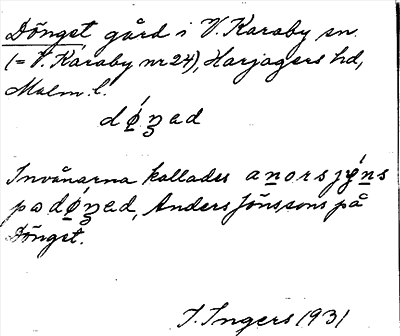 Dönget gård i V. Karaby sn.
(= V. Karaby nr 24), Harjagers hd,
Malm. l.
dǿʒad
Invånarna kallades anorsjǿns
padǿʒad, Anders Jönssons på
Dönget.
I. Ingers 1931